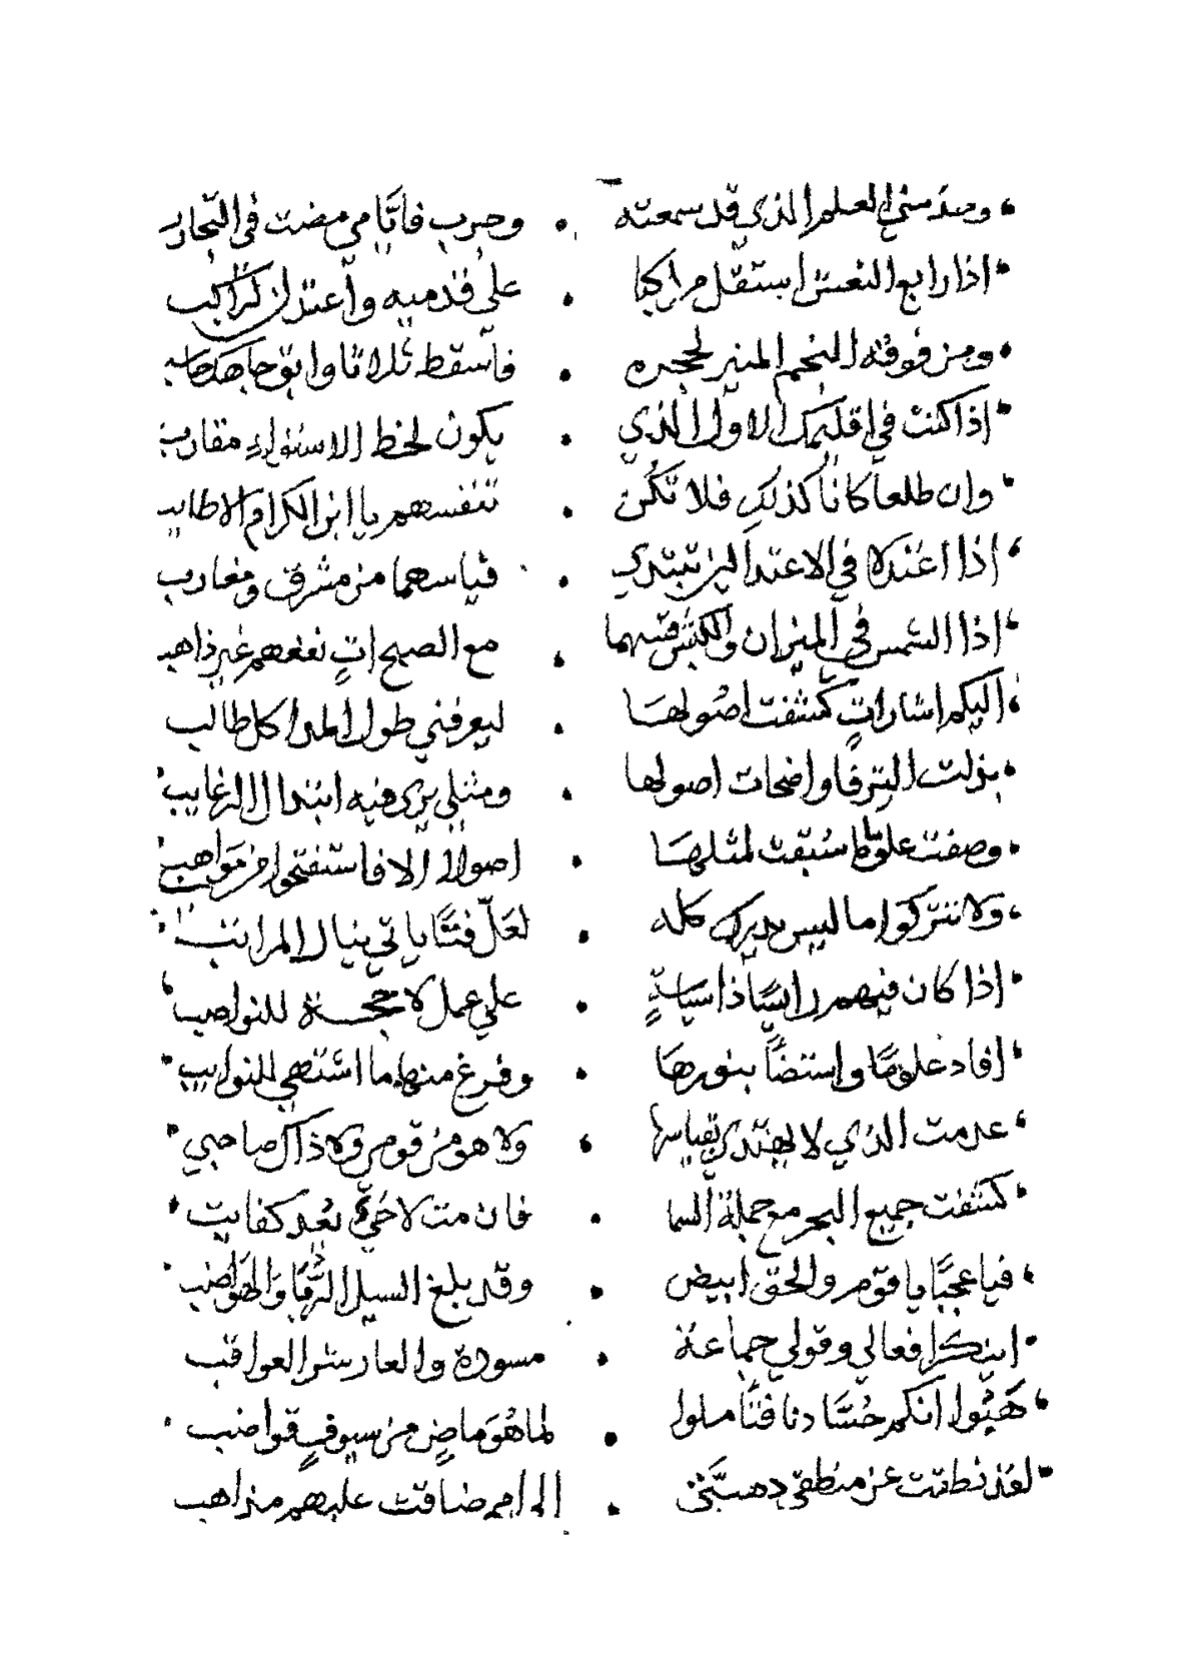 وخذ مني العلم الذي قد سمعته • وجرب فايامي مضت في التجارب
اذا رابع النعش استقل مراكبا • على قدميه واعتدلن لراكب
ومن فوقه النجم المنير لحجره • فاسقط ثلاثا وابق جاهد حاسب
اذا كنت في اقليمك الاول الذي • يكون لخط الاستواء مقارب
وان طلعا كانا كذلك فلا تكن • تنفسهم يا ابن الكرام الاطايب
اذا اعتدلا في الاعتدالين تبتدي • قياسهما من مشرق ومغارب
اذا الشمس في الميزان والكبش فيهما • مع الصبح ات نفعهم غير ذاهب
اليكم اشارات كشفت اصولها • ليعرفني طول المدا كل طالب
بذلت الترفا واضحات اصولها • ومثلي يرى فيه ابتدال الرغايب
وصفت علوما سبقت لمثلها • اصولا الا فاستفتحوا من مواهب
ولا تتركوا ما ليس يدرك كله • لعل فتا ياتي ينال المراتب
اذا كان فيهم رايسا ذا سياسة • على عمل لا حجة للنواصب
افاد علوما واستضا بنورها • وفرغ منها ما اشتهي للنوايب
عدمت الذي لا يهتدي بقياسها • ولا هو من قوم ولا ذاك صاحبي
كشفت جميع البحر مع جملة السما • فان مت لاحي بعد كفايت
فيا عجبا يا قوم والحق ابيض • وقد بلغ السيل الربا والهواضب
اينكر افعالي وقولي جماعة • مسودة والعار شر العواقب
هبوا انكم حسادنا فتاملوا • لما هو ماض من سيوف قواضب
لقد نطقت عن منطقي دهشتني • الى امم ضاقت عليهم مذاهب